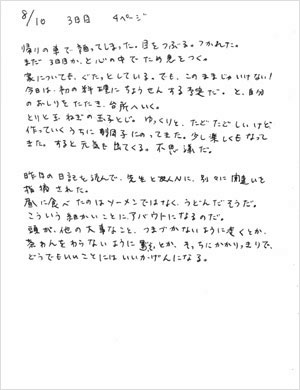 8/10 3日目 4ページ
帰りの車で 眠ってしまった。目をつぶる。つかれた。
まだ 3日目か、と心の中で ため息をつく。
家についても、ぐたっとしている。でも、このままじゃいけない!
今日は、初の料理に ちょうせんする予定だ。と、自分
のおしりをたたき、台所へいく。
とりと玉ねぎの玉子とじ。ゆっくりと、たどたどしいけど
作っていくうちに 調子にのってきた。少し楽しくもなって
きた。すると元気も出てくる。不思議だ。
昨日の日記を読んで、先生と友人Nに、別々に間違いを
指摘された。
昼に食べたのはソーメンではなく、うどんだそうだ。
こういう細かいことに、アバウトになるのだ。
頭が、他の大事なこと、つまづかないように歩くとか、
茶わんをわらないように 置くとか、そっちにかかりっきりで、
どうでもいいことにはいいかげんになる。